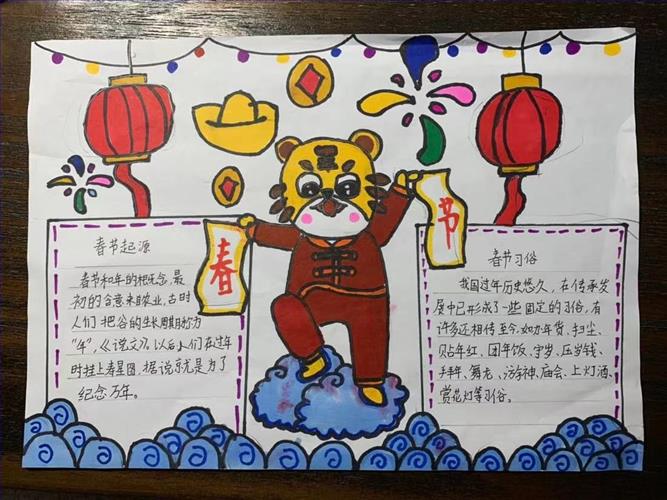 春
节
春节起源
春节和年的概念,最
初的含意来自农业,古时
人们把谷的生长周期称为
“年”,《说文》,以后人们在过年
时挂上寿星图,据说就是为了
纪念万年。
春节习俗
我国过年历史悠久,在传承发
展中已形成了一些固定的习俗,有
许多还相传至今,如办年货、扫尘、
贴年红、团年饭、守岁、压岁钱、
拜年、舞龙、游神、庙会、上灯酒、
赏花灯等习俗。